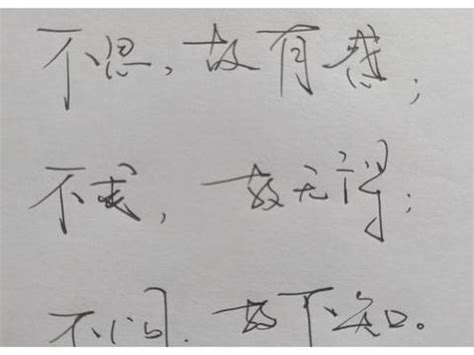 不思，故有惑；
不求，故无得；
不问，故不知。